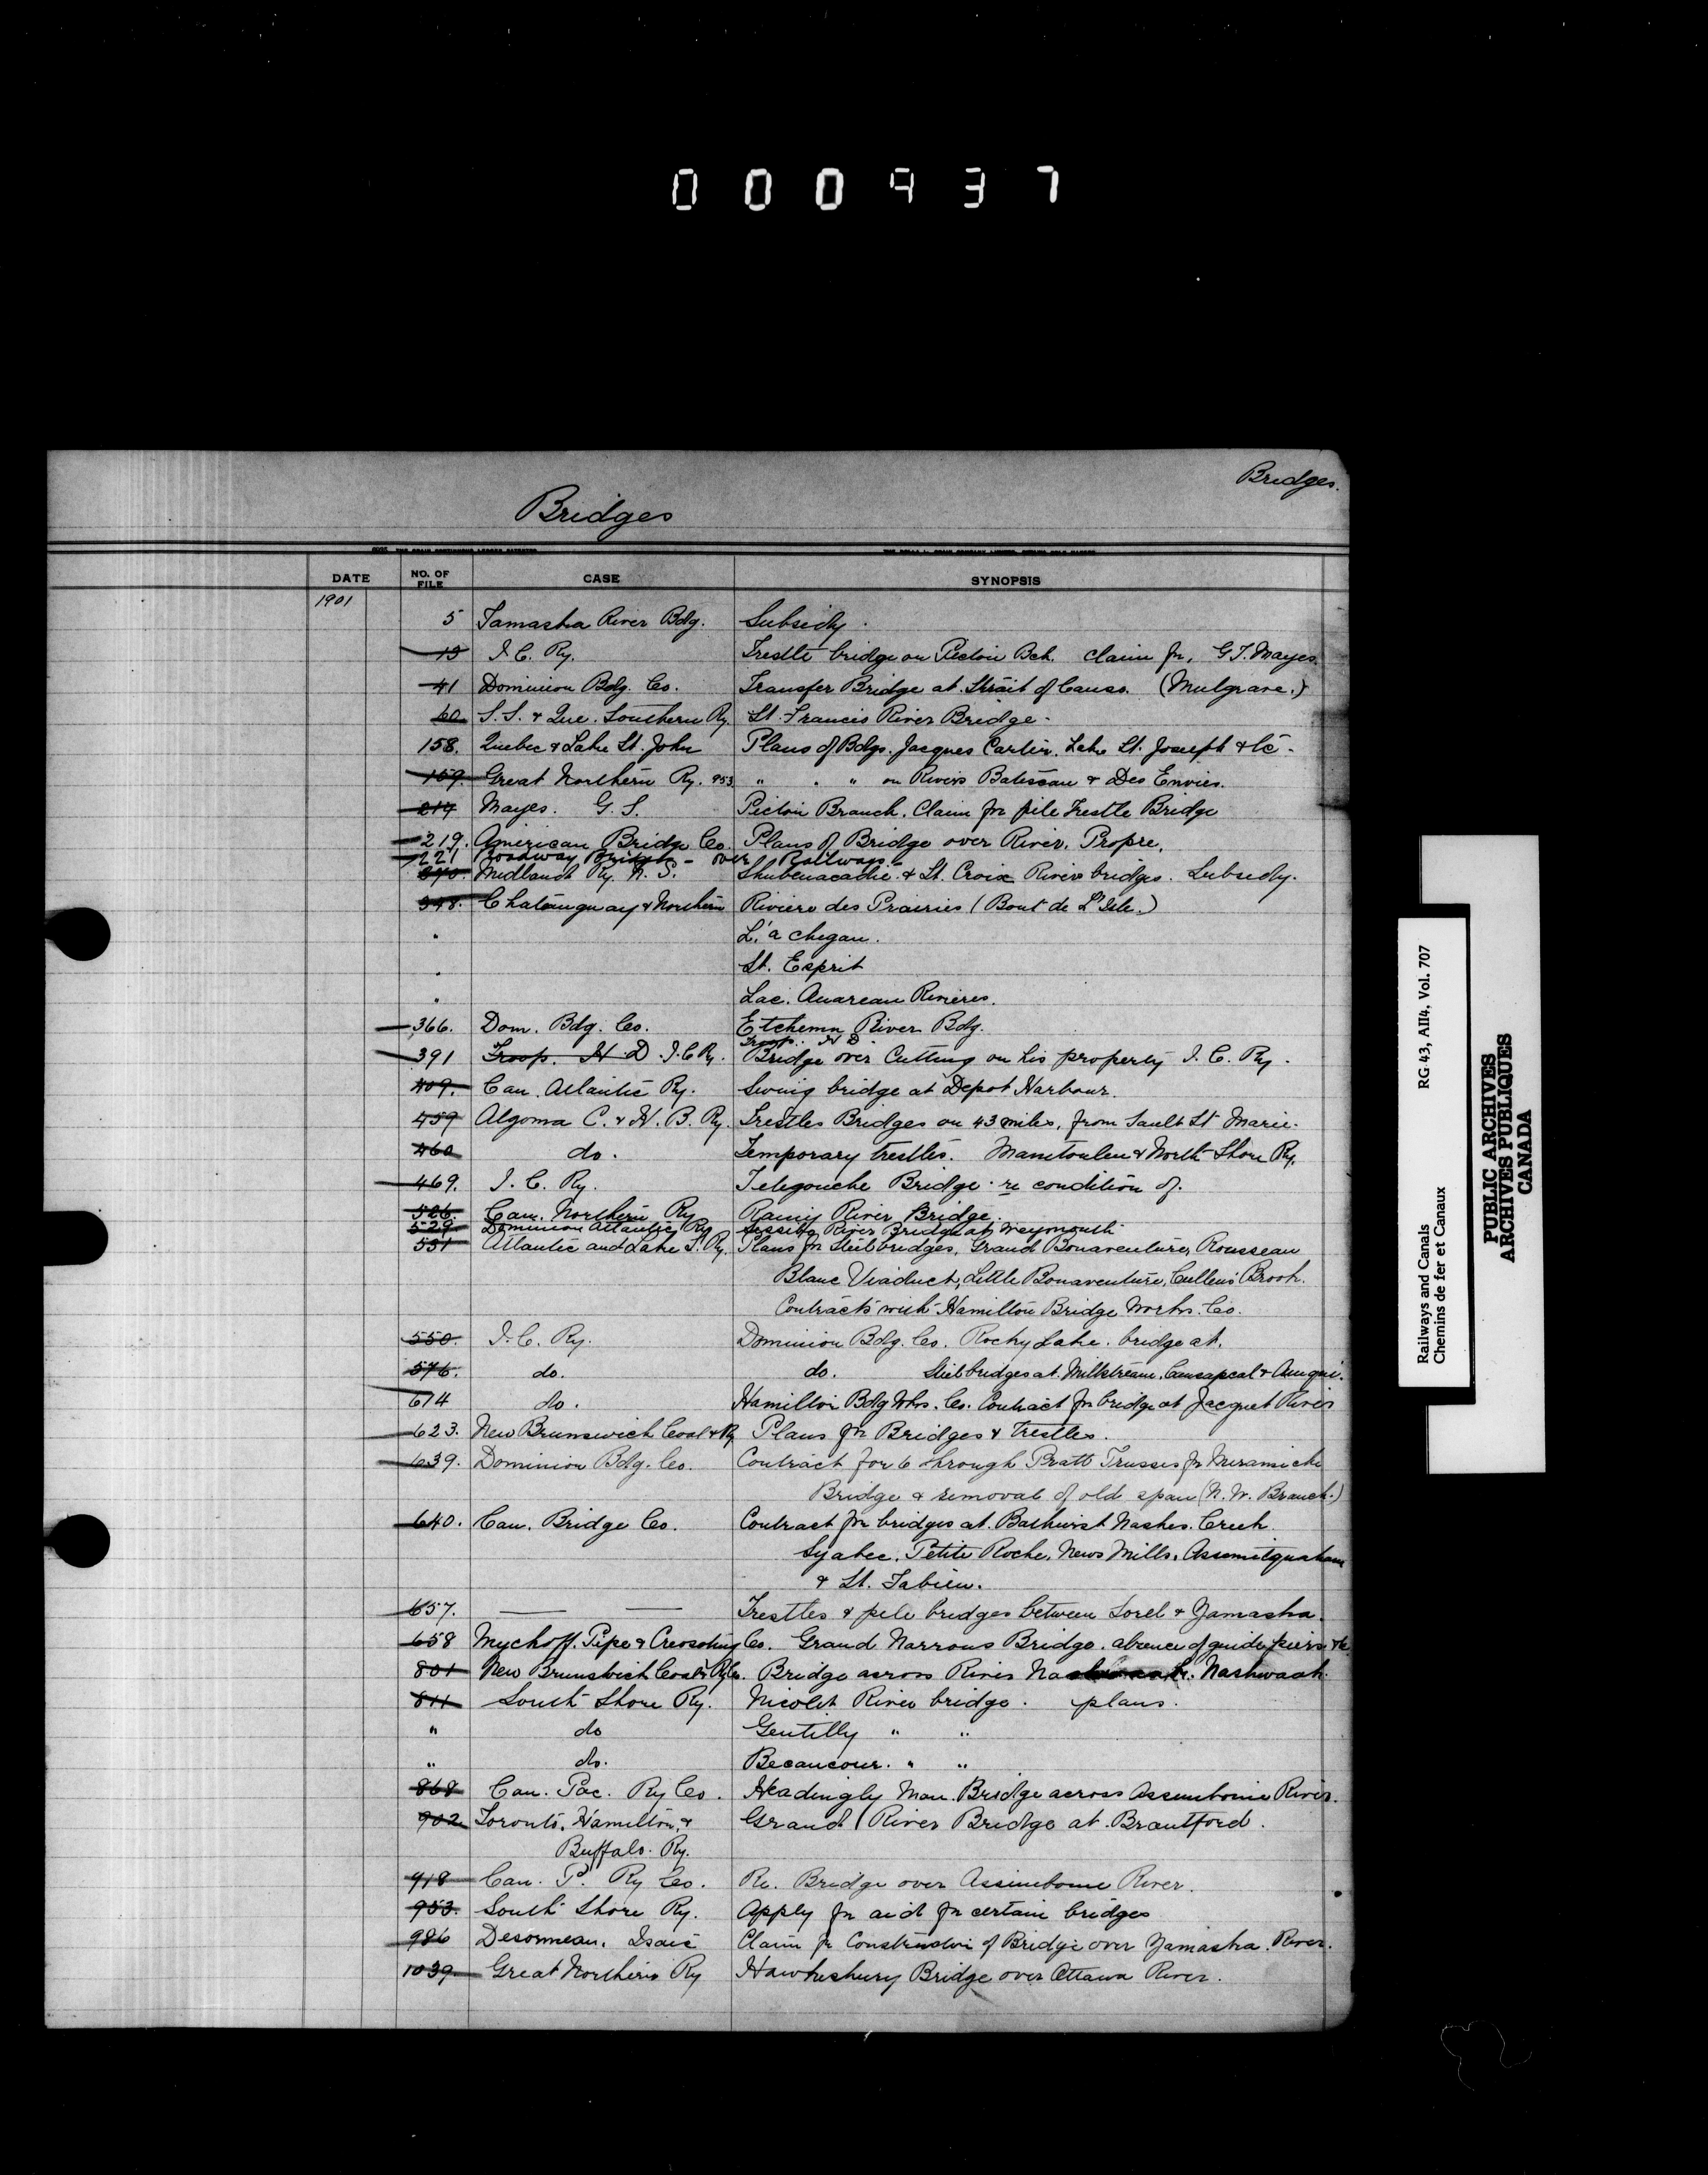 000937
Bridges.
Bridges
DATE NO. OF FILE CASE SYNOPSIS
1901
5 Yamaska River Bdg. Subsidy.
15 I. C. Ry. Trestle bridge on Pictou Bch. Claim for, G. S. Mayes.
41 Dominion Bdg. Co. Transfer Bridge at Strait of Canso. (Mulgrave.)
60 S. S. & Que. Southern Ry St. Francis River Bridge.
158. Quebec & Lake St. John Plans of Bdgs. Jacques Cartier. Lake St. Joseph &c.
159. Great Northern Ry. 953 " " " on Rivers Batiscan & Des Envies.
214 Mayes. G. S. Pictou Branch. Claim for pile Trestle Bridge
219. American Bridge Co. Plans of Bridge over River Propre.
221 Roadway Bridges - over Railways -
240. Midland Ry. N. S. Shubenacadie & St. Croix River bridges. Subsidy.
348. Chateauguay & Northern Riviere des Prairies (Bout de L'Isle.)
" L'a chegan.
" St. Esprit
" Lac. Ouareau Rivieres.
366. Dom. Bdg. Co. Etchemn River Bdg.
Troop. H D.
391 Troop. H. D. I. C. Ry. Bridge over Cutting on his property I. C. Ry.
409. Can. Atlantic Ry. Swing bridge at Depot Harbour.
459 Algoma C. & H. B. Ry. Trestles Bridges on 43 miles, from Sault St Marie.
460 do. Temporary trestles. Manitoulin & North Shore Ry.
469. I. C. Ry. Tetegouche Bridge. re condition of.
526. Can. Northern Ry Rainy River Bridge.
529. Dominion Atlantic Ry Sissiboo River Bridge at Weymouth
531 Atlantic and Lake S. Ry. Plans for Steel bridges, Grand Bonaventure, Rousseau
Blanc Viaduct, Little Bonaventure, Cullens Brook.
Contracts with Hamilton Bridge Works. Co.
550. I. C. Ry. Dominion Bdg. Co. Rocky Lake. bridge at.
576. do. do. Steel bridges at Millstream, Causapcal & Amqui.
614 do. Hamilton Bdg Wks. Co. Contract for bridge at Jacquet River
623. New Brunswick Coal & Ry Plans for Bridges & Trestles.
639. Dominion Bdg. Co. Contract for 6 through Pratt Trusses for Miramichi
Bridge & removal of old span (N. W. Branch.)
640. Can. Bridge Co. Contract for bridges at Bathurst Nashes. Creek.
Syabec. Petite Roche. News Mills. Assemetquaham
& St. Fabien.
657. Trestles & pile bridges between Sorel & Yamaska.
658 Wyckoff. Pipe & Creosoting Co. Grand Narrows Bridge. absence of guide piers &c
801 New Brunswick Coal & Ry Co. Bridge across River Nashwaak.
811 South Shore Ry. Nicolet River bridge. plans.
" do Gentilly " "
" do. Becancour. " "
868 Can. Pac. Ry Co. Headingly Man. Bridge across Assiniboine River.
902 Toronto, Hamilton, & Grand River Bridge at Brantford.
Buffalo. Ry.
918 Can. P. Ry Co. Re. Bridge over Assiniboine River.
953. South Shore Ry. Apply for aid for certain bridges
986 Desormeau. Isaie Claim for Construction of Bridge over Yamaska River.
1039. Great Northern Ry Hawkesbury Bridge over Ottawa River.
RG-43, AII4, Vol. 707
Railways and Canals
Chemins de fer et Canaux
PUBLIC ARCHIVES
ARCHIVES PUBLIQUES
CANADA